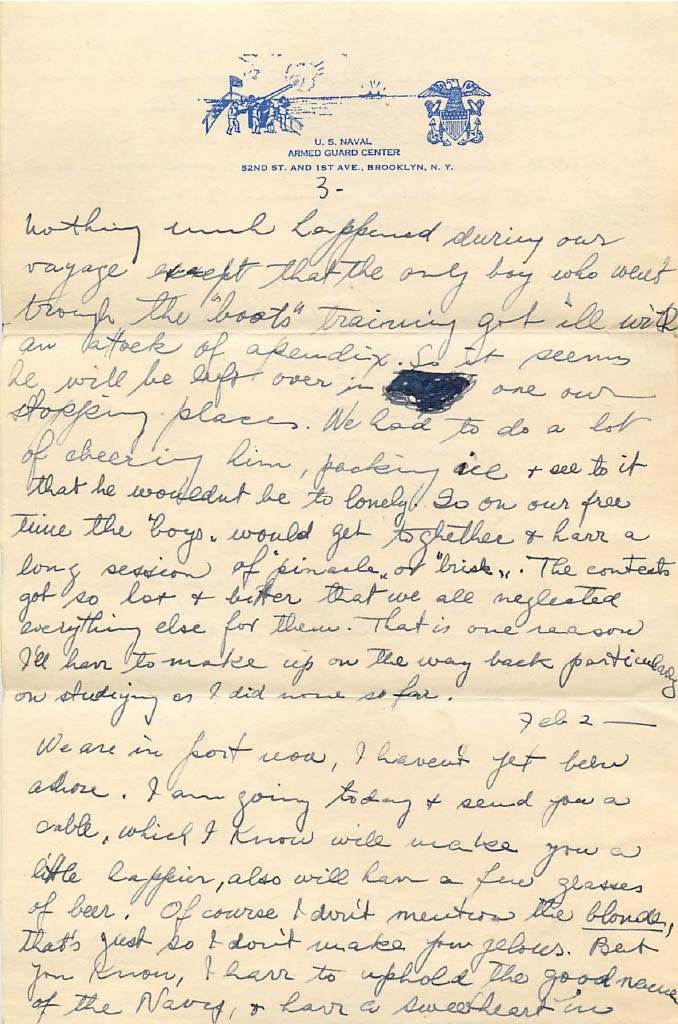 U. S. NAVAL
ARMED GUARD CENTER
52ND ST. AND 1ST AVE., BROOKLYN, N. Y.
3-
Nothing much happened during our
vayage except that the only boy who went
trough the "boots" training got ill with
an attack of apendix. So it seems
he will be left over in one our
stopping places. We had to do a lot
of cheering him, packing ice + see to it
that he wouldnt be to lonely. So on our free
time the "boys" would get toghether & have a
long session of "pinacle" or "brisk". The contests
got so hot & bitter that we all neglected
everything else for them. That is one reason
I'll have to make up on the way back particularly
on studying as I did none so far.
Feb 2 —
We are in port now, I havent yet been
ashore. I am going today & send you a
cable, which I know will make you a
little happier, also will have a few glasses
of beer. Of course I don't mention the blonds,
that's just so I don't make you jelous. But
you know, I have to uphold the good name
of the Navy, & have a sweetheart in